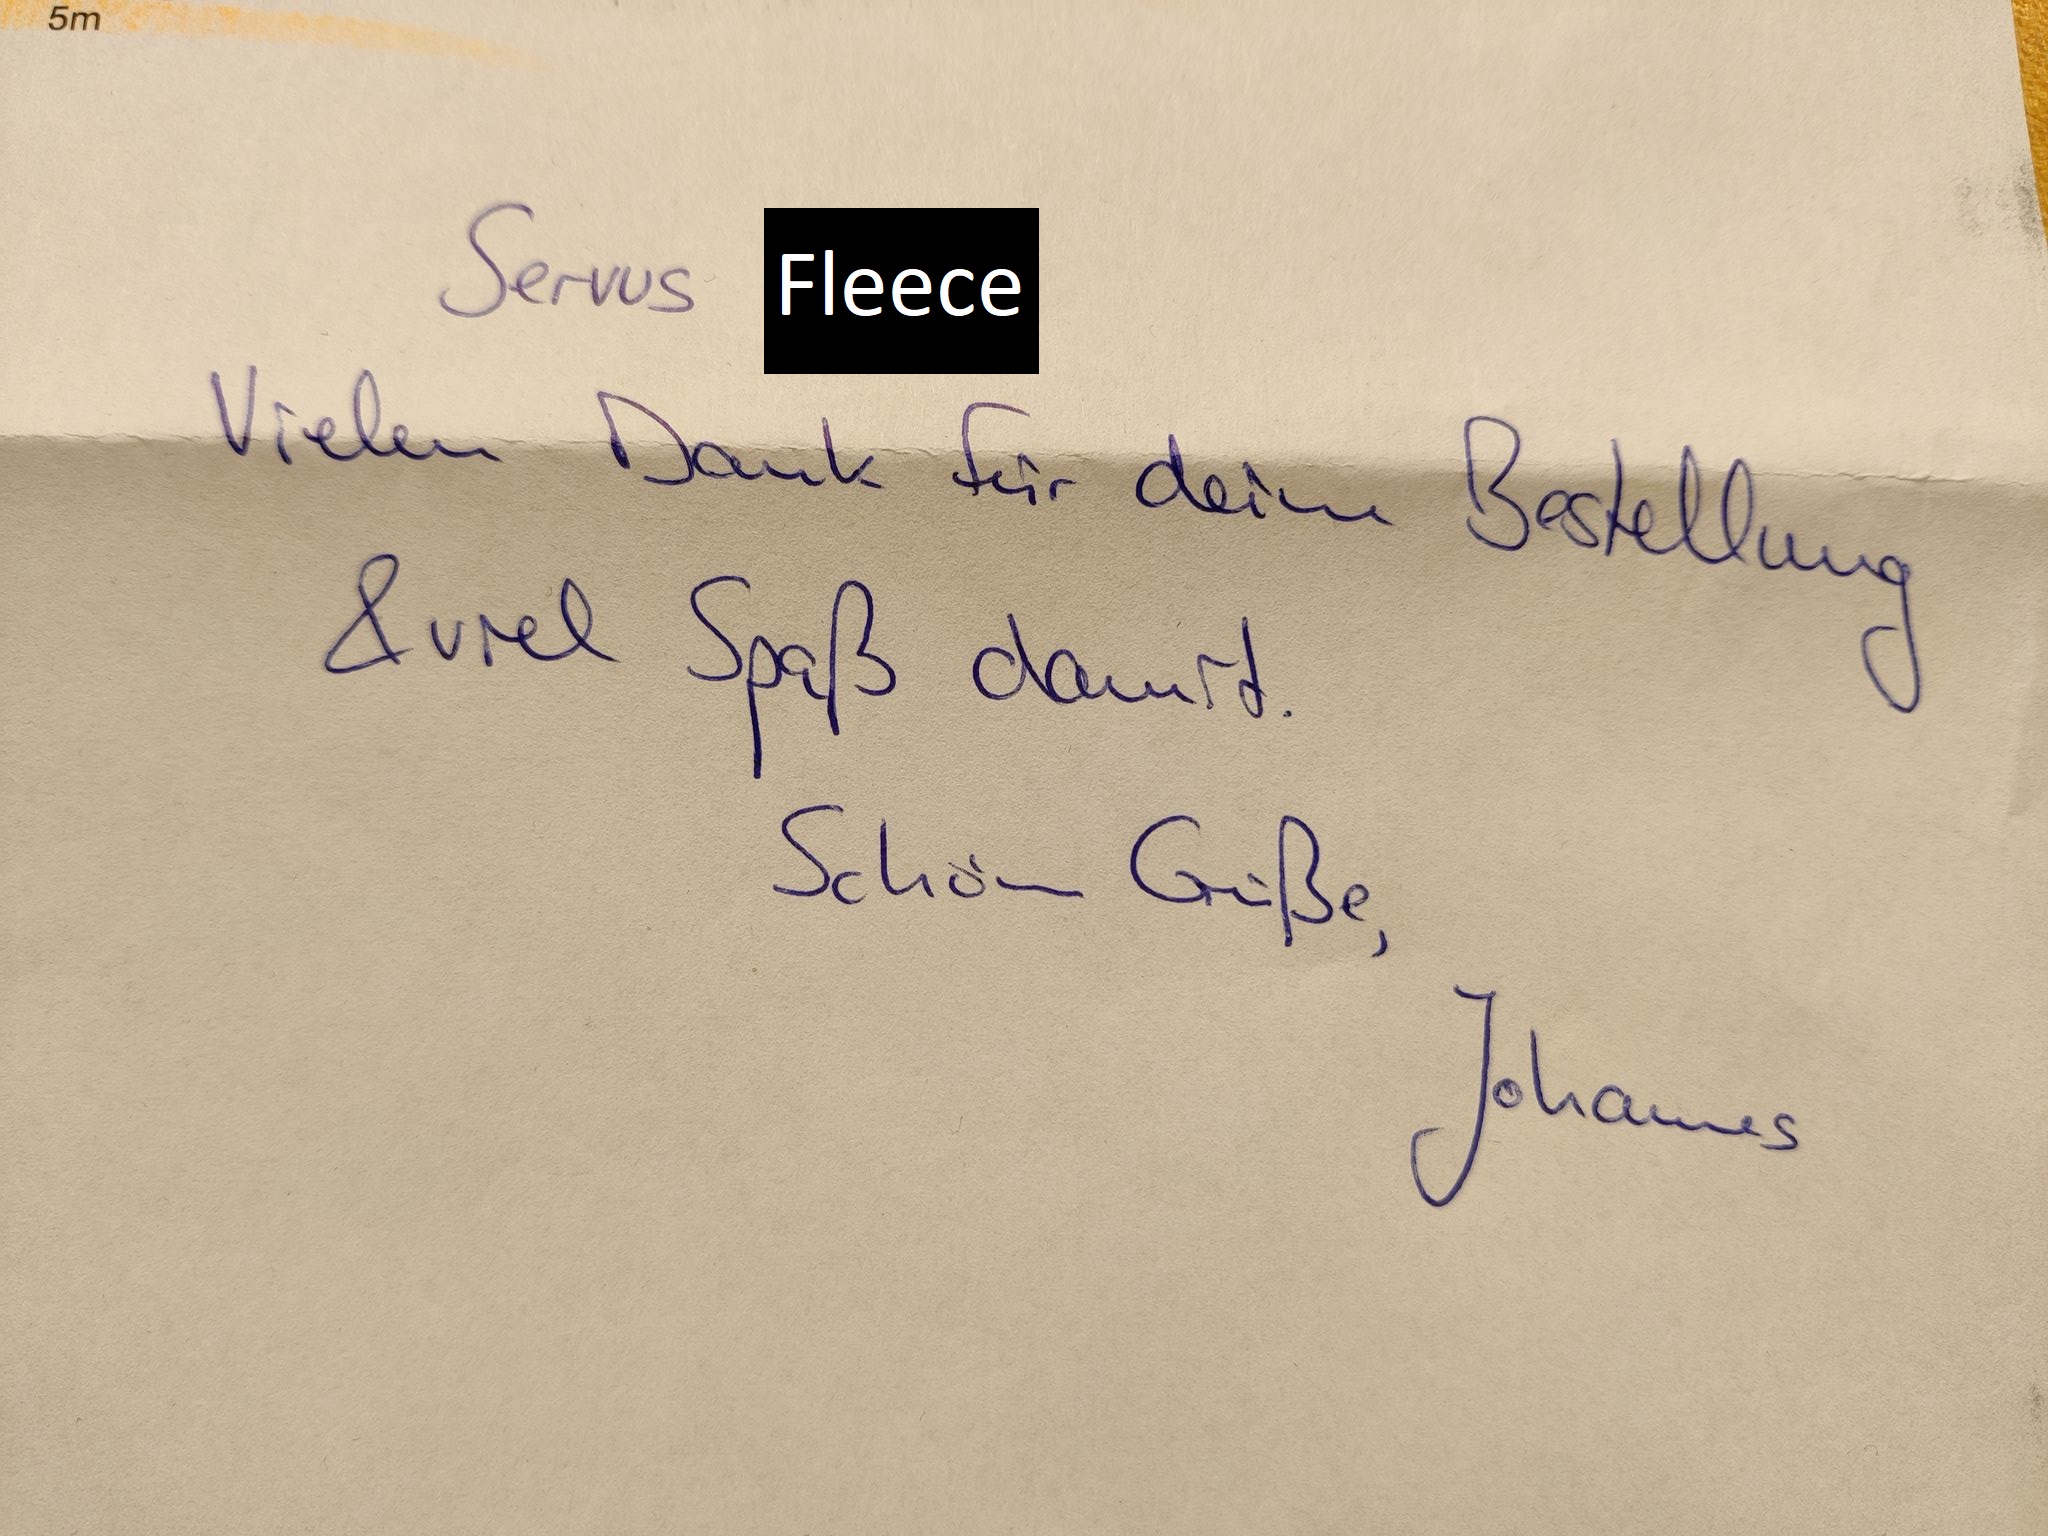 5m
Servus Fleece
Vielen Dank für deine Bestellung
& viel Spaß damit.
Schöne Grüße,
Johannes